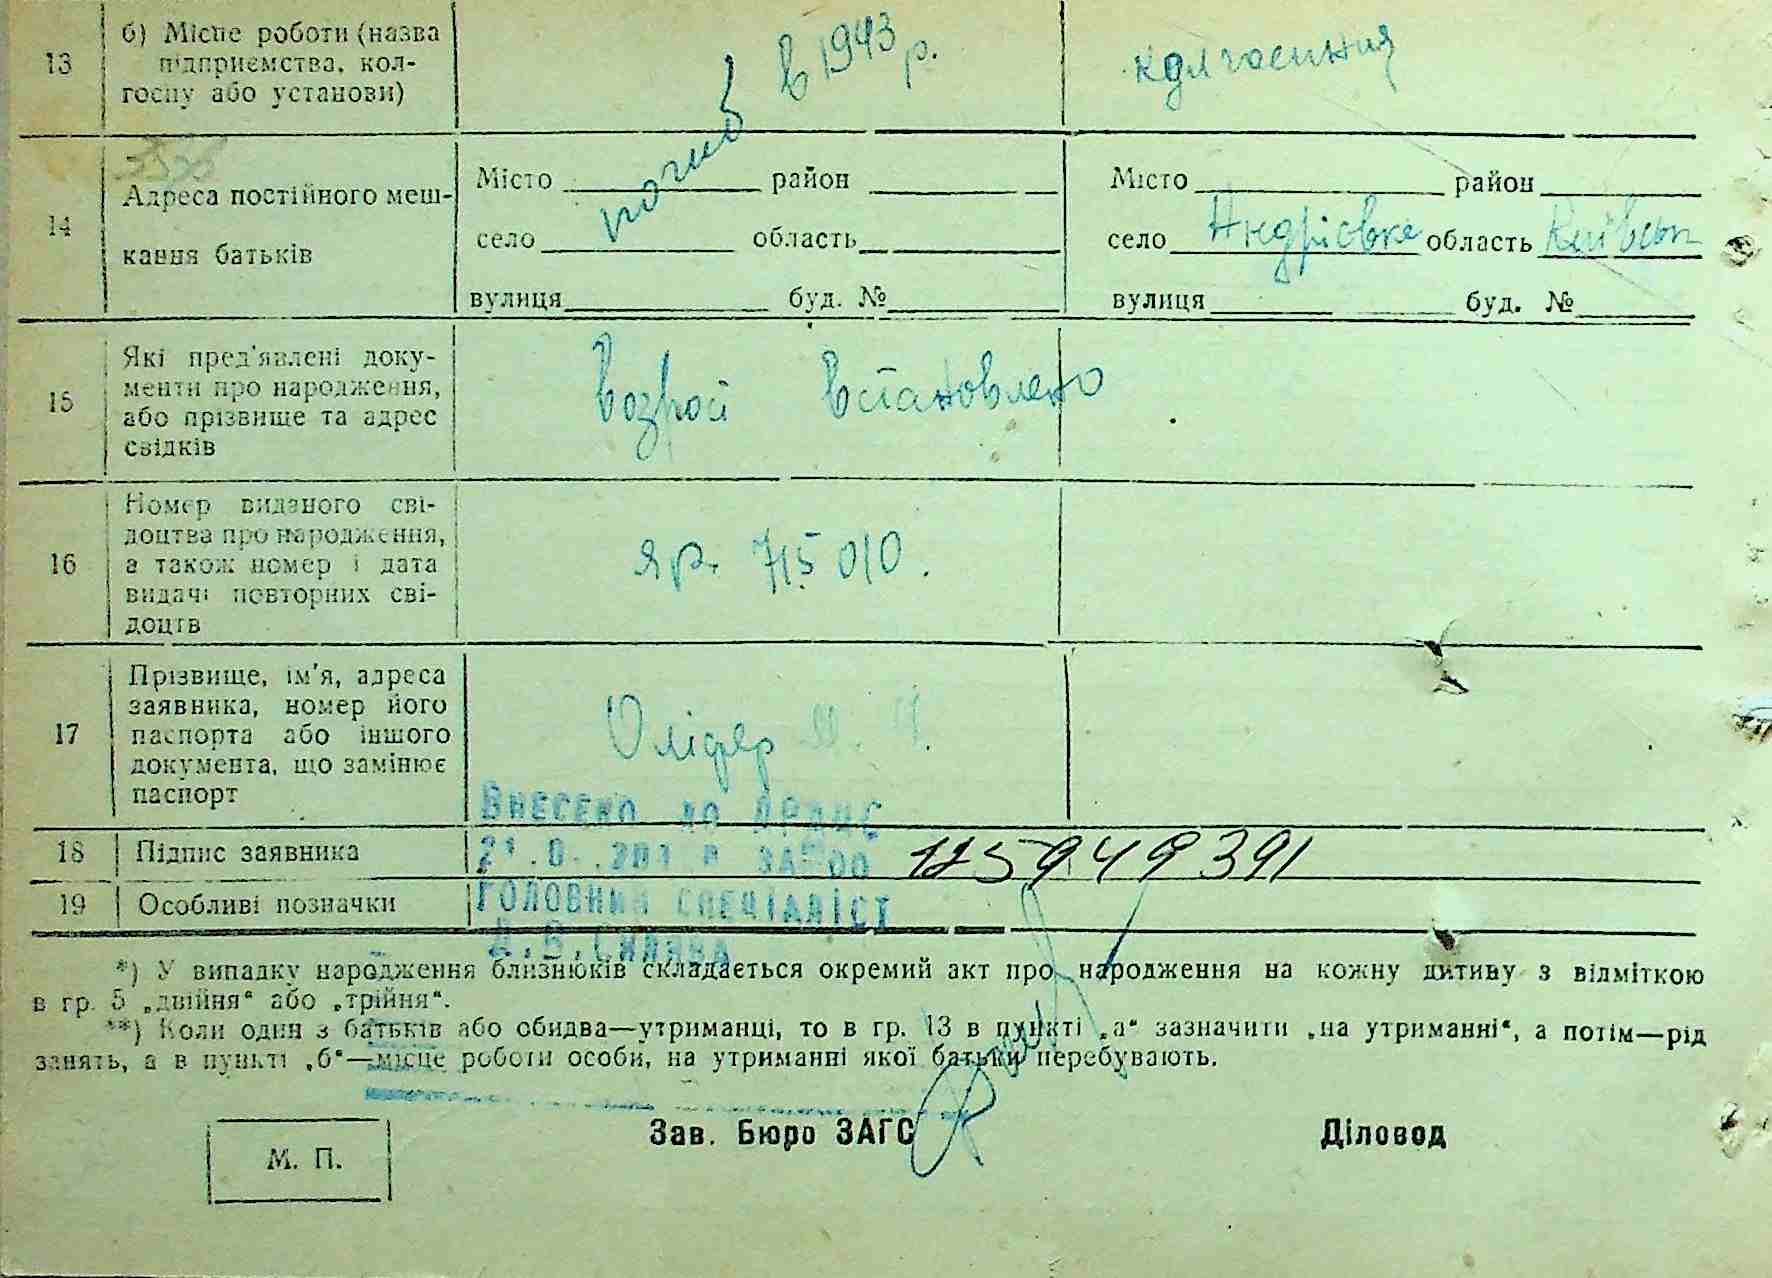 13 б) Місце роботи (назва підприємства, кол-
госпу або установи)
погиб в 1943 р.
колгоспниця
14 Адреса постійного меш-
кання батьків
Місто район
село область
вулиця буд. №
Місто район
село Андріївка область Київськ
вулиця буд. №
15 Які пред'явлені доку-
менти про народження,
або прізвище та адрес
свідків
Возраст встановлено
16 Номер виданого сві-
доцтва про народження,
а також номер і дата
видачі повторних сві-
доцтв
яр. 715010.
17 Прізвище, ім'я, адреса
заявника, номер його
паспорта або іншого
документа, що замінює
паспорт
Оліфер
Внесено до ДРАЦС
18 Підпис заявника
125949391
19 Особливі позначки
Головний спеціаліст
*) У випадку народження близнюків складається окремий акт про народження на кожну дитину з відміткою
в гр. 5 „двійня“ або „трійня“.
**) Коли один з батьків або обидва—утриманці, то в гр. 13 в пункті „а“ зазначити „на утриманні“, а потім—рід
занять, а в пункті „б“—місце роботи особи, на утриманні якої батьки перебувають.
М. П.
Зав. Бюро ЗАГС
Діловод